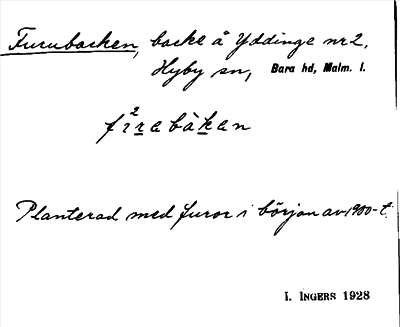 Furubacken, backe å Yddinge nr 2,
Hyby sn, Bara hd, Malm. l.
Planterad med furor i början av 1900-t.
I. INGERS 1928